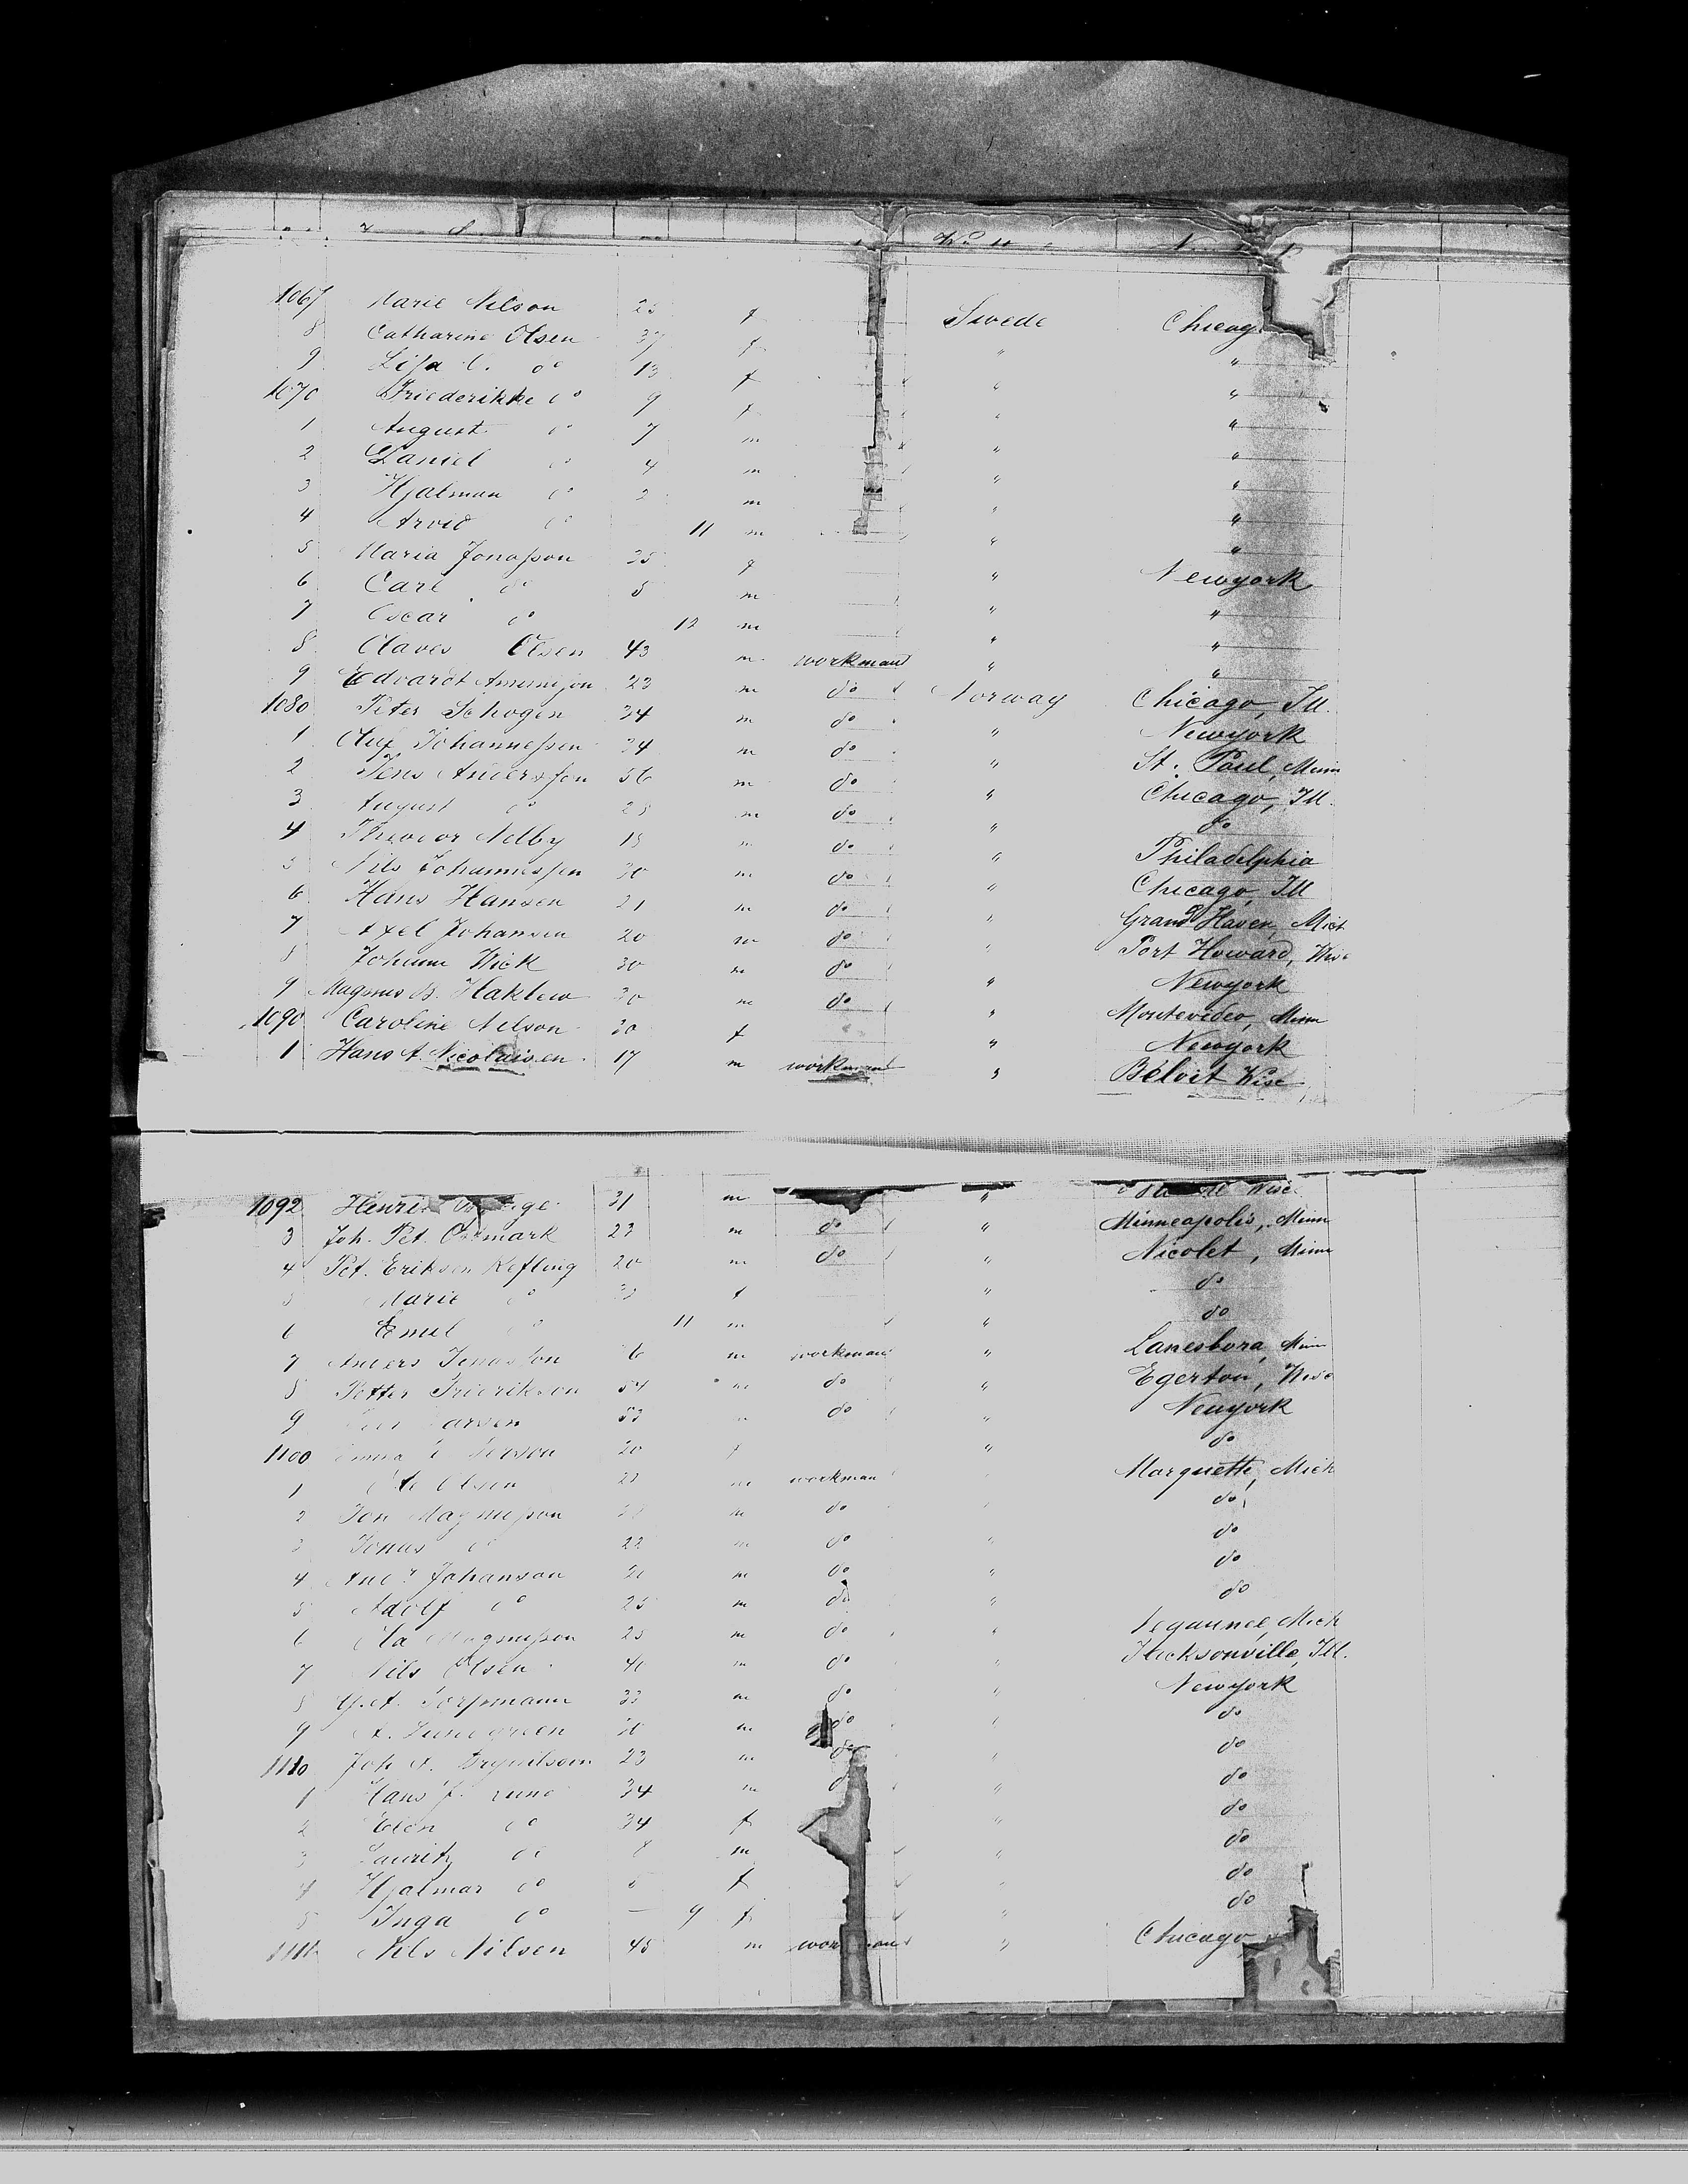 1067 Marie Nilson 25 f Swede Chicag
8 Catharine Olsen 37 f " "
9 Lisa C. do 13 f " "
1070 Friederikke do 9 f " "
1 August do 7 m " "
2 Daniel do 4 m " "
3 Hjalman do 2 m " "
4 Arvid do 11 m " "
5 Maria Jonasson 35 f " Newyork
6 Carl do 5 m " "
7 Oscar do 12 m " "
8 Olaves Olsen 43 m workman " "
9 Edvardt 23 m do Norway Chicago, Ill.
1080 Peter Schogen 34 m do " Newyork
1 Oluf Johannessen 34 m do " St. Paul, Minn
2 Jens Anderssen 56 m do " Chicago, Ill.
3 August do 25 m do " do
4 Theodor Melby 18 m do " Philadelphia
5 Nils Johannessen 30 m do " Chicago, Ill
6 Hans Hansen 21 m do " Grand Haven, Mich
7 Axel Johansen 20 m do " Fort Howard, Wisc
8 Johann Wick 30 m do " Newyork
9 Magnus B. 30 m do " Montevideo, Minn
1090 Caroline Nelson 30 f " Newyork
1 Hans A. Nicolaisen 17 m workman " Beloit Wisc
1092 Henri 31 m " Wisc
3 Joh. Pet. 23 m do " Minneapolis, Minn
4 Pet. Eriksen Kefling 20 m do " Nicolet, Minn
5 Marie do f " do
6 Emil do 11 m " do
7 Anders Jonasson m workman " Lanesbora, Minn
8 Petter Fridrikson 54 m do " Egerton, Wisc
9 Larsen 53 m do " Newyork
1100 20 f " do
1 Olsen m workman Marquette, Mich
2 Jon Magnusson m do " do
3 Jonas do 22 m do " do
4 And. Johanson m do " do
5 Adolf do 25 m do " do
6 Ola Magnusson 25 m do " Negaunee, Mich
7 Nils Olsen 40 m do " Jacksonville, Ill.
8 33 m do " Newyork
9 A. m do " do
1110 Joh A. 23 m do " do
1 Hans J. Lund 34 m do " do
2 Elen do 34 f " do
3 Lauritz do 8 m " do
4 Hjalmar do f " do
5 Inga do — 9 f " do
Nils Nilsen 45 m workman " Chicago